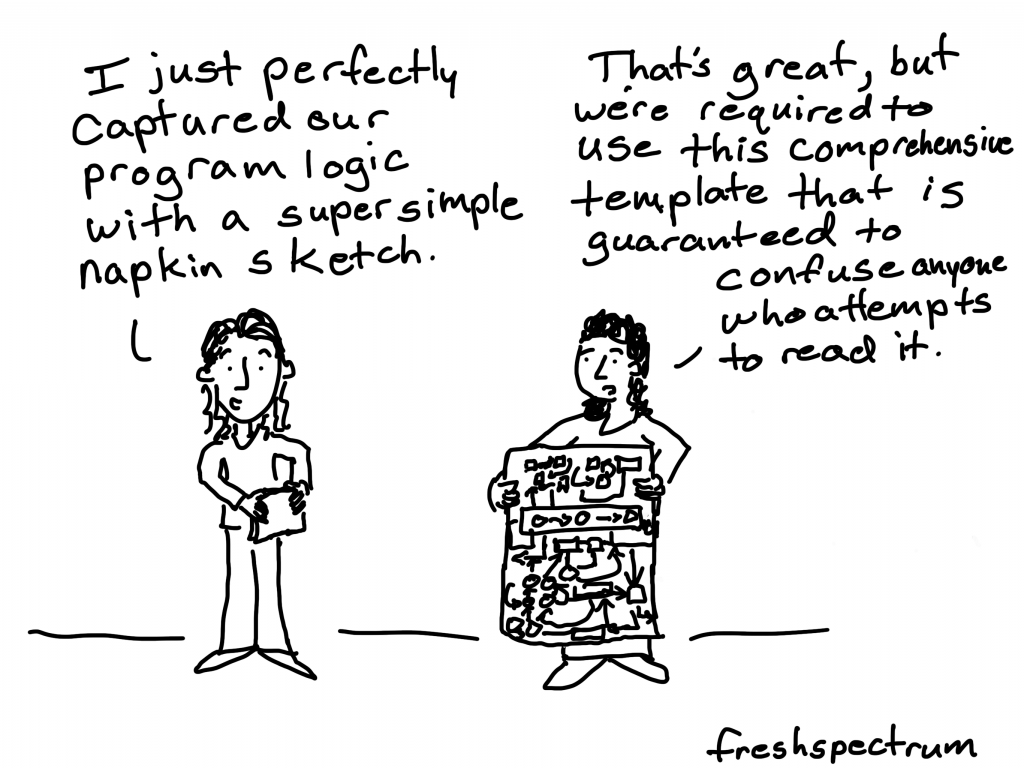 I just perfectly
captured our
program logic
with a super simple
napkin sketch.
That's great, but
we're required to
use this comprehensive
template that is
guaranteed to
confuse anyone
who attempts
to read it.
freshspectrum